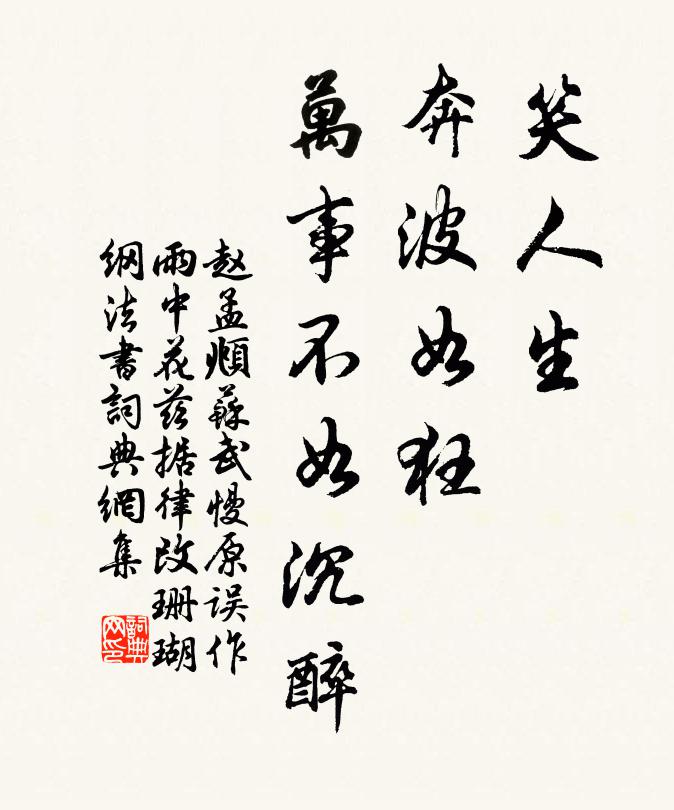 笑人生
奔波如狂
萬事不如沉醉
赵孟頫蘇武慢原误作
雨中花兹据律改珊瑚
綱法書詞典網集
詞典
网印